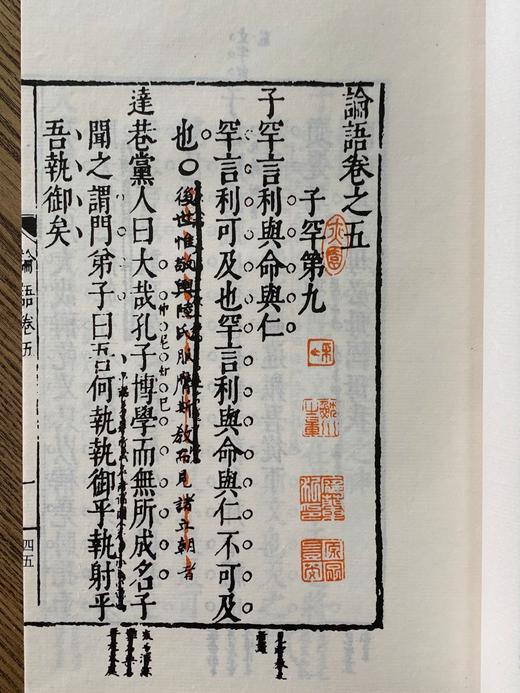 論語卷之五
子罕第九
子罕言利與命與仁
罕言利可及也罕言利與命與仁不可及
也〇後世惟敬輿陸氏服膺斯教而見諸立朝者
達巷黨人曰大哉孔子博學而無所成名子
聞之謂門弟子曰吾何執執御乎執射乎
吾執御矣
論語卷五
一
四五